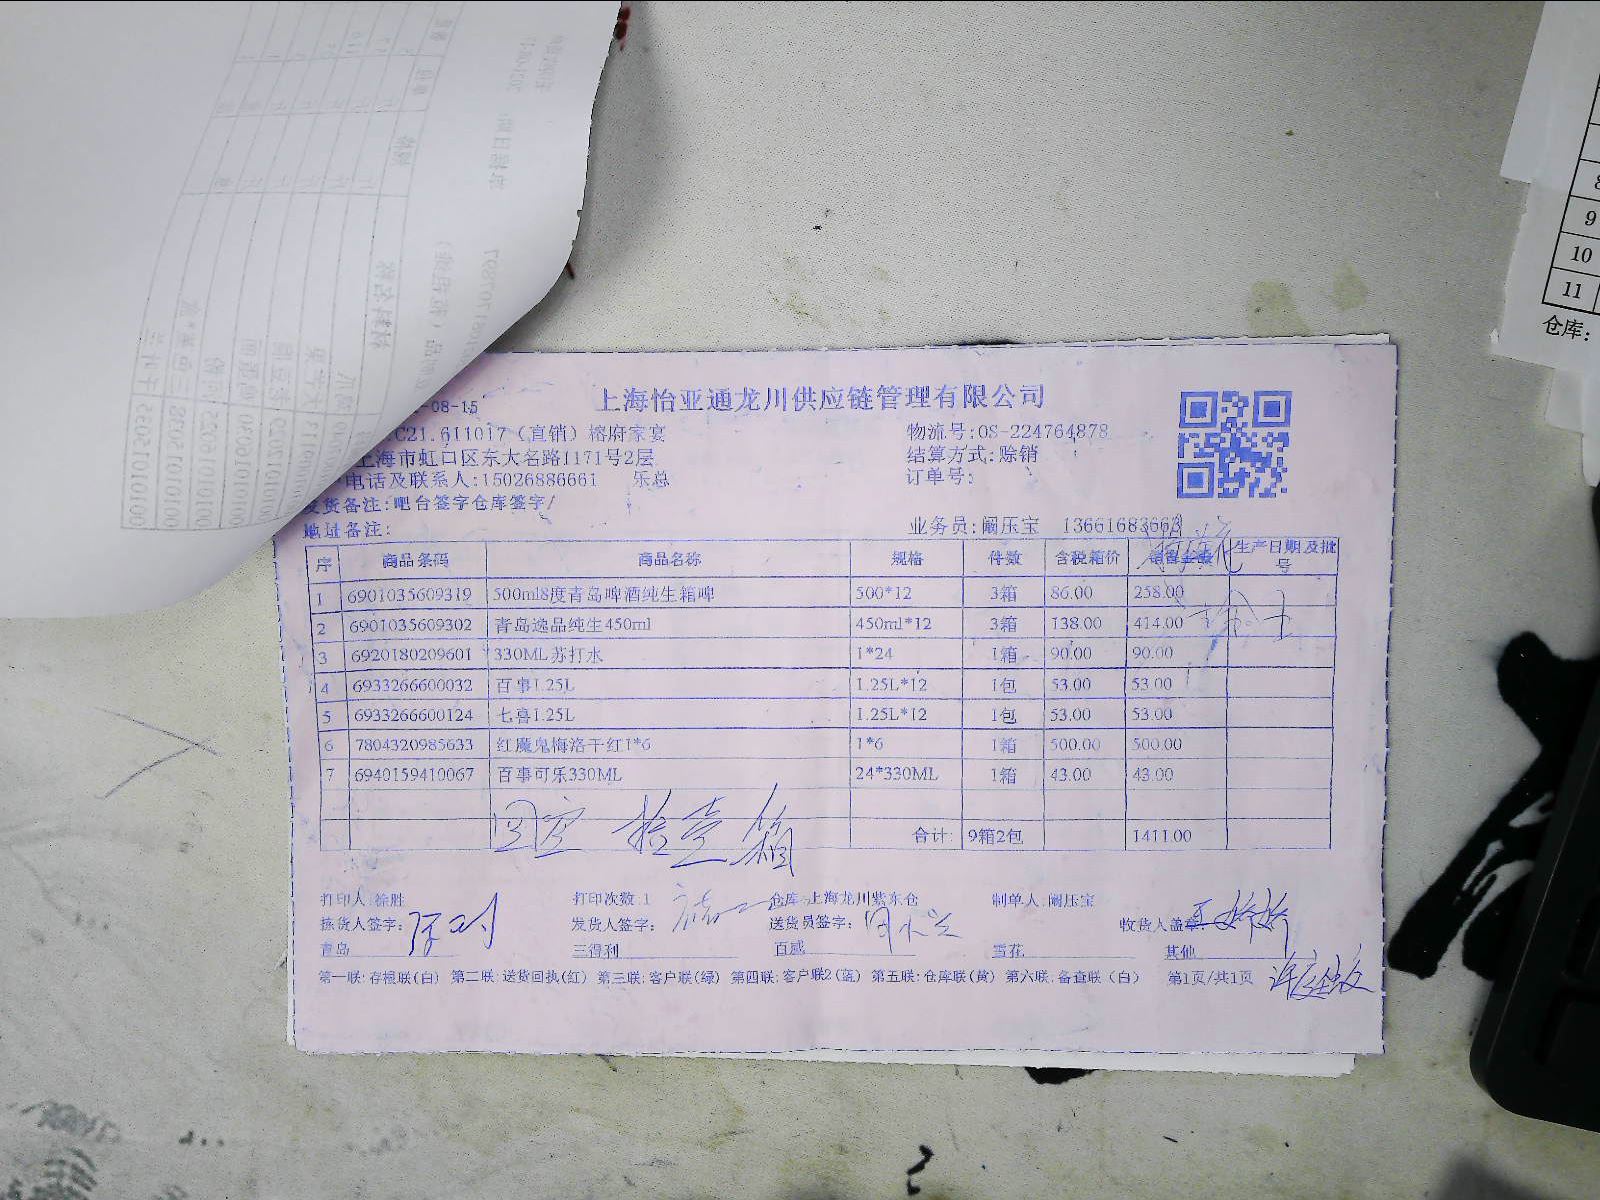 上海怡亚通龙川供应链管理有限公司
-08-15
C21.611017（直销）榕府家宴
物流号:OS-224764878
上海市虹口区东大名路1171号2层
结算方式:赊销
电话及联系人:15026886661 乐总
订单号:
发货备注:吧台签字仓库签字/
地址备注:
业务员:阚压宝 13661683663
序 商品条码 商品名称 规格 件数 含税箱价 销售金额 生产日期及批号
1 6901035609319 500ml8度青岛啤酒纯生箱啤 500*12 3箱 86.00 258.00
2 6901035609302 青岛逸品纯生450ml 450ml*12 3箱 138.00 414.00
3 6920180209601 330ML苏打水 1*24 1箱 90.00 90.00
4 6933266600032 百事1.25L 1.25L*12 1包 53.00 53.00
5 6933266600124 七喜1.25L 1.25L*12 1包 53.00 53.00
6 7804320985633 红魔鬼梅洛干红1*6 1*6 1箱 500.00 500.00
7 6940159410067 百事可乐330ML 24*330ML 1箱 43.00 43.00
合计: 9箱2包 1411.00
回空 壹箱
打印人:徐胜 打印次数:1 仓库:上海龙川紫东仓 制单人:阚压宝
拣货人签字: 发货人签字: 送货员签字: 收货人盖章:
青岛 三得利 百威 雪花 其他
第一联:存根联(白) 第二联:送货回执(红) 第三联:客户联(绿) 第四联:客户联2(蓝) 第五联:仓库联(黄) 第六联:备查联(白) 第1页/共1页
9
10
11
仓库: